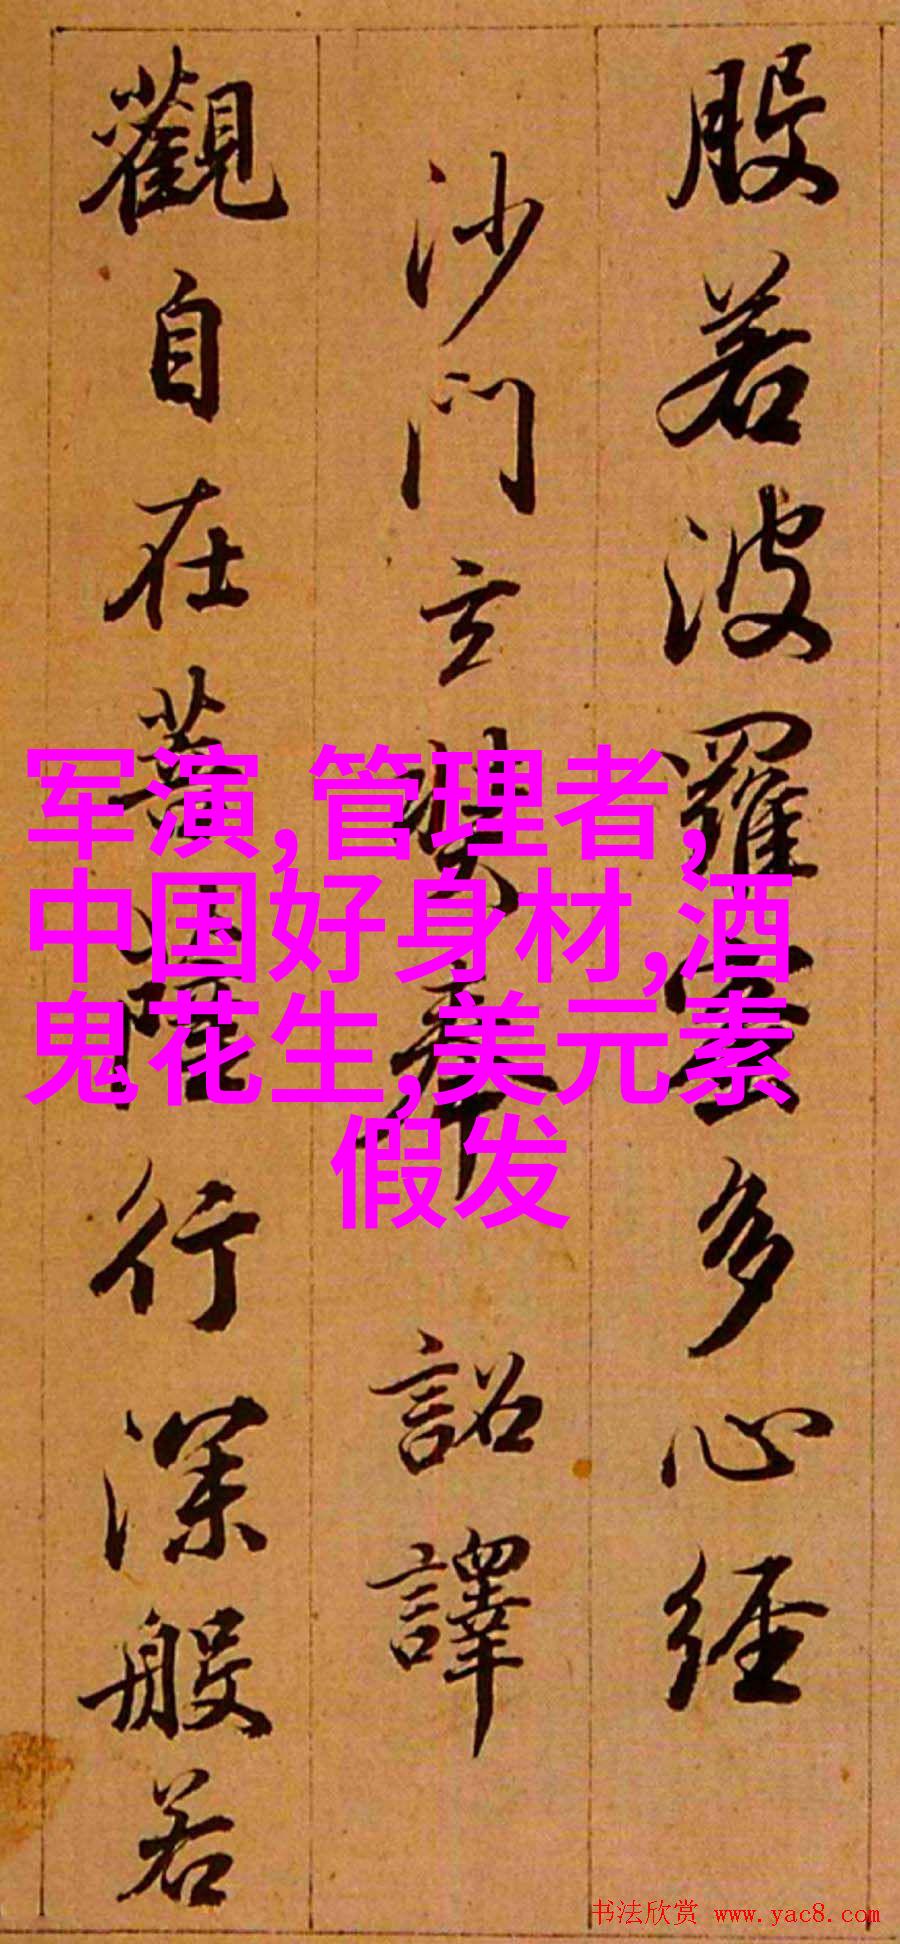 般若波羅蜜多心経
沙門玄奘奉 詔譯
觀自在菩薩行深般若
军演,管理者,
中国好身材,酒
鬼花生,美元素
假发
书法欣赏 www.yac8.com